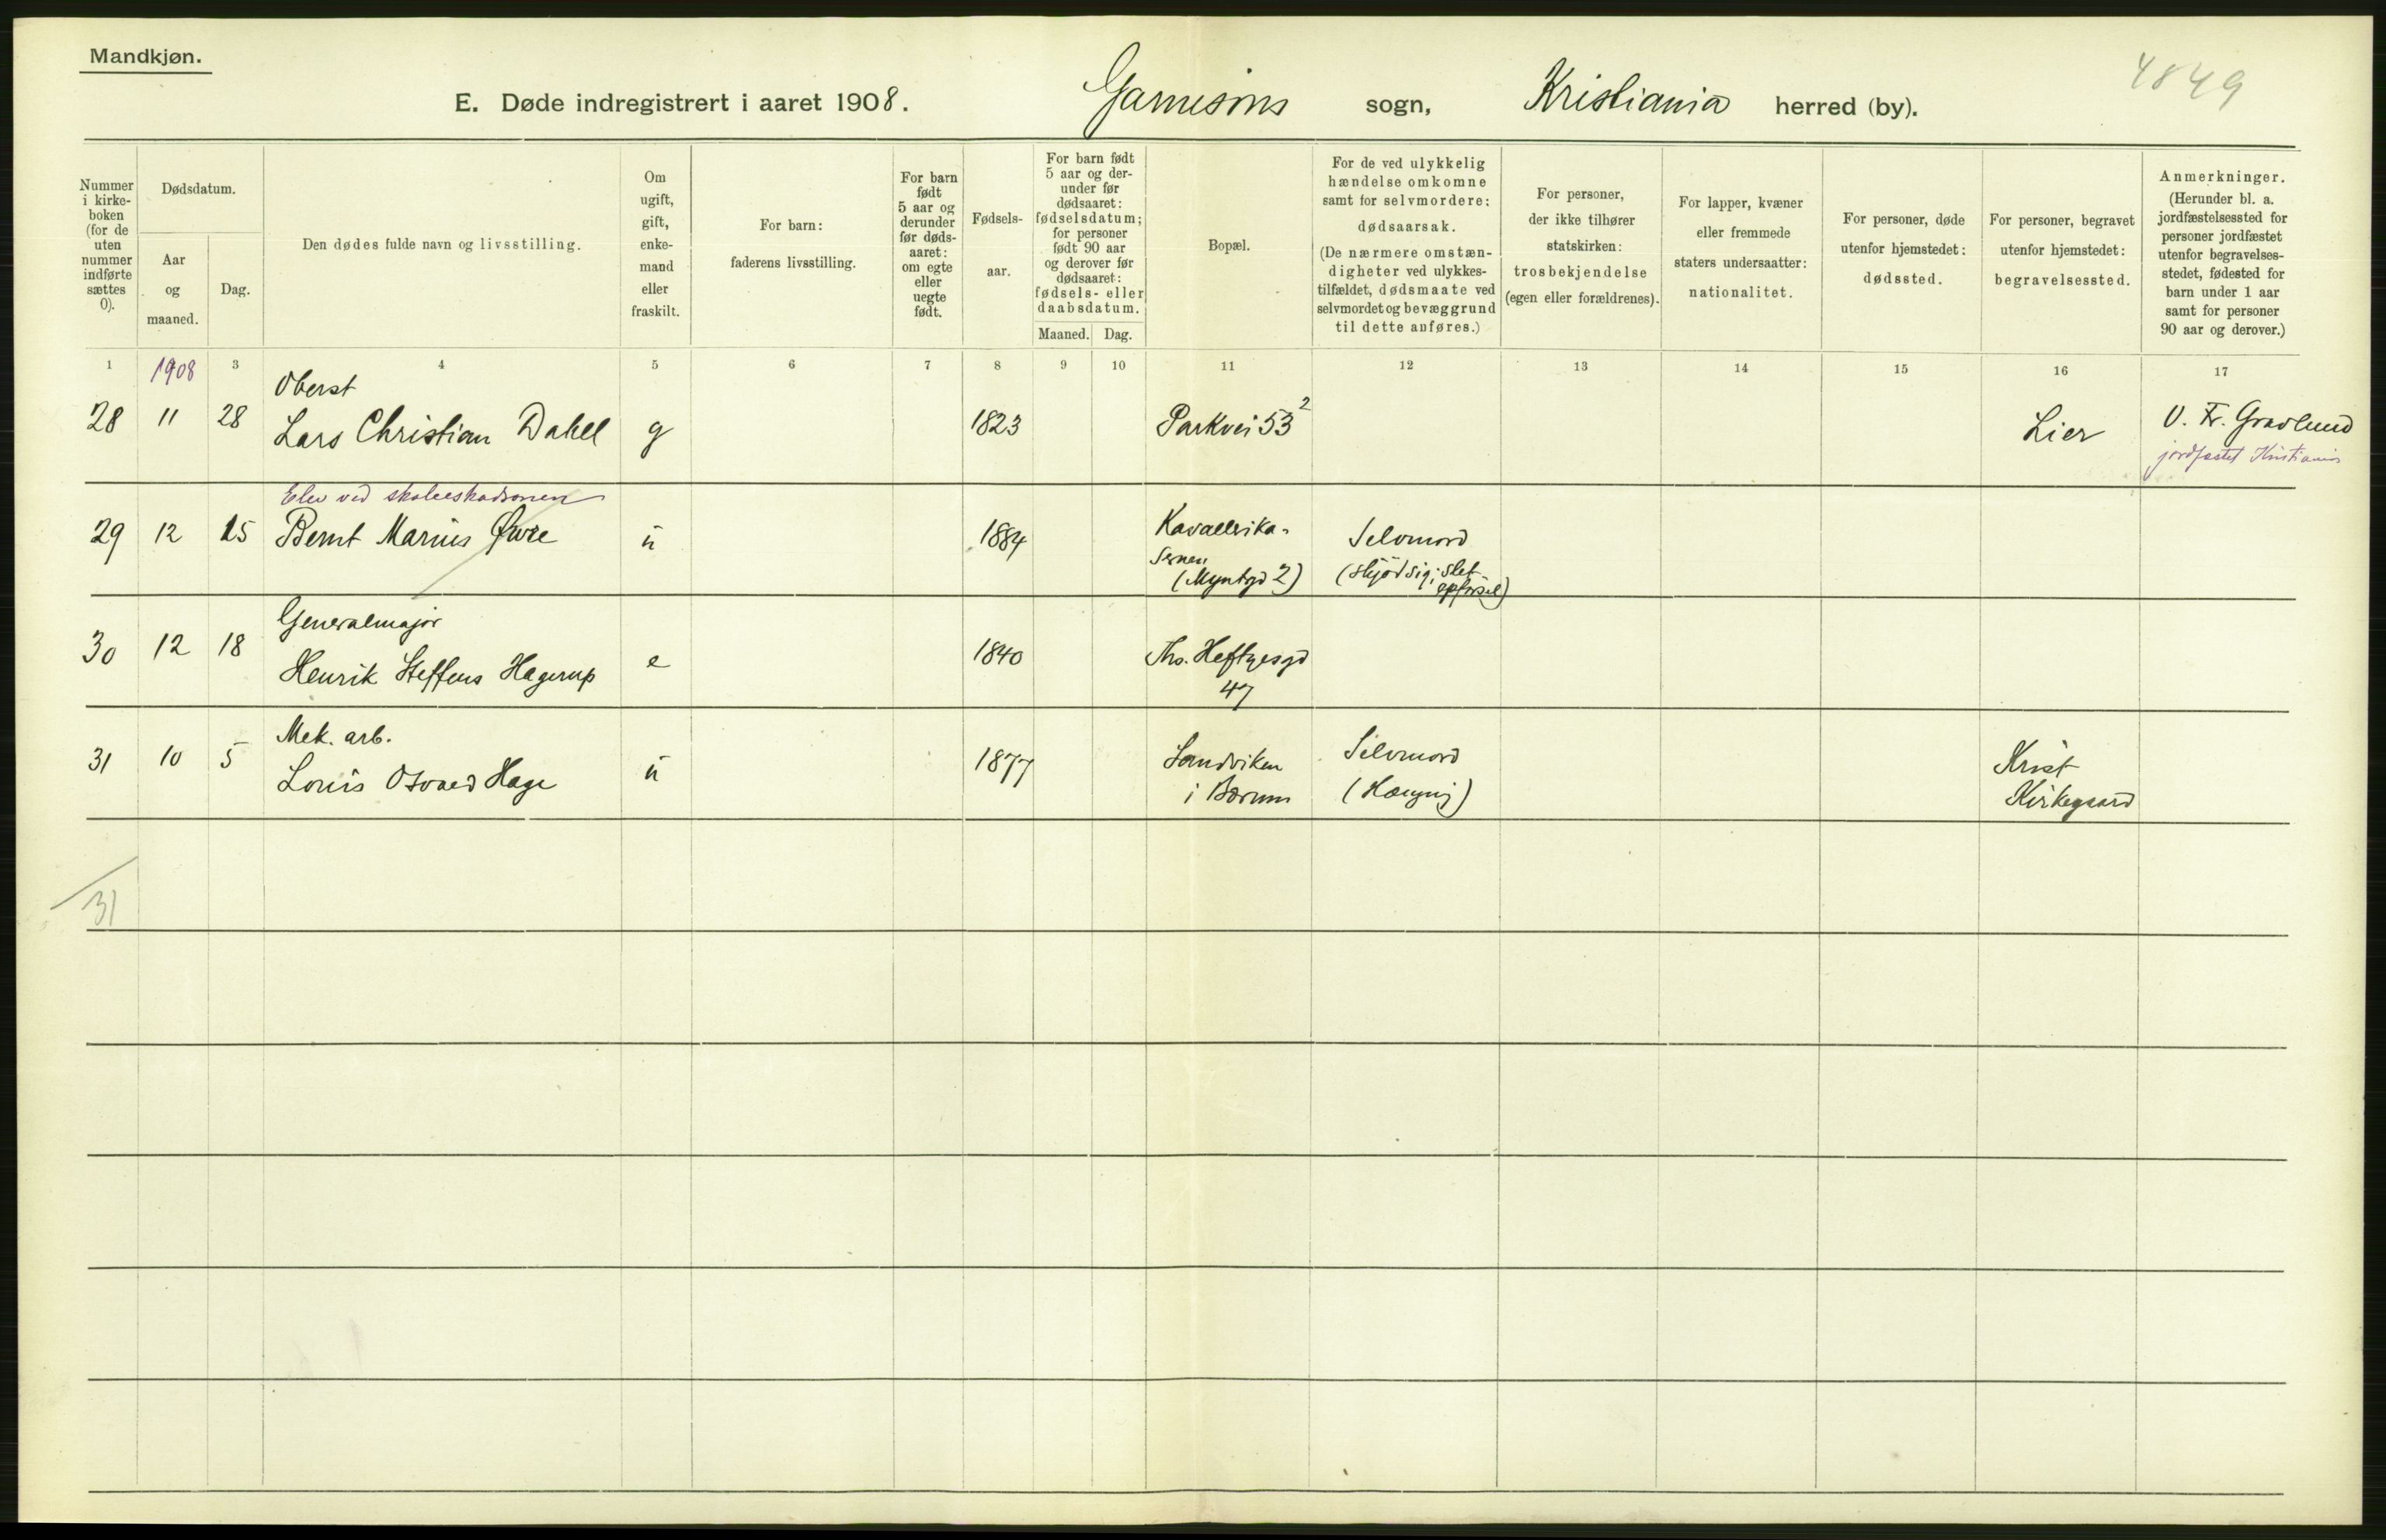 Mandkjøn.
4849
E. Døde indregistrert i aaret 1908. Garnisons sogn, Kristiania herred (by).
Nummer i kirkeboken (for de uten nummer indførte sættes 0).
Dødsdatum.
Aar og maaned.
Dag.
Den dødes fulde navn og livsstilling.
Om ugift, gift, enkemand eller fraskilt.
For barn: faderens livsstilling.
For barn født 5 aar og derunder før dødsaaret: om egte eller uegte født.
Fødselsaar.
For barn født 5 aar og derunder før dødsaaret: fødselsdatum; for personer født 90 aar og derover før dødsaaret: fødsels- eller daabsdatum.
Maaned. Dag.
Bopæl.
For de ved ulykkelig hændelse omkomne samt for selvmordere: dødsaarsak. (De nærmere omstændigheter ved ulykkestilfældet, dødsmaate ved selvmordet og bevæggrund til dette anføres.)
For personer, der ikke tilhører statskirken: trosbekjendelse (egen eller forældrenes).
For lapper, kvæner eller fremmede staters undersaatter: nationalitet.
For personer, døde utenfor hjemstedet: dødssted.
For personer, begravet utenfor hjemstedet: begravelsessted.
Anmerkninger. (Herunder bl. a. jordfæstelsessted for personer jordfæstet utenfor begravelsesstedet, fødested for barn under 1 aar samt for personer 90 aar og derover.)
1 1908 3 4 5 6 7 8 9 10 11 12 13 14 15 16 17
Oberst
28 11 28 Lars Christian Dahll g 1823 Parkvei 53² Lier V. Fr. Gravlund
jordfæstet Kristiania
Elev ved skoleeskadronen
29 12 15 Bernt Marius Øvre u 1884 Kavallerika-
sernen
(Myntgd 2)
Selvmord
(skjød sig; slet
opførsel)
Generalmajor
30 12 18 Henrik Steffens Hagerup e 1840 Ths. Heftyesgd
47
Mek. arb.
31 10 5 Louis Osvald Hage u 1877 Sandviken
i Bærum
Selvmord
(Hængning)
Krist
Kirkegaard
31